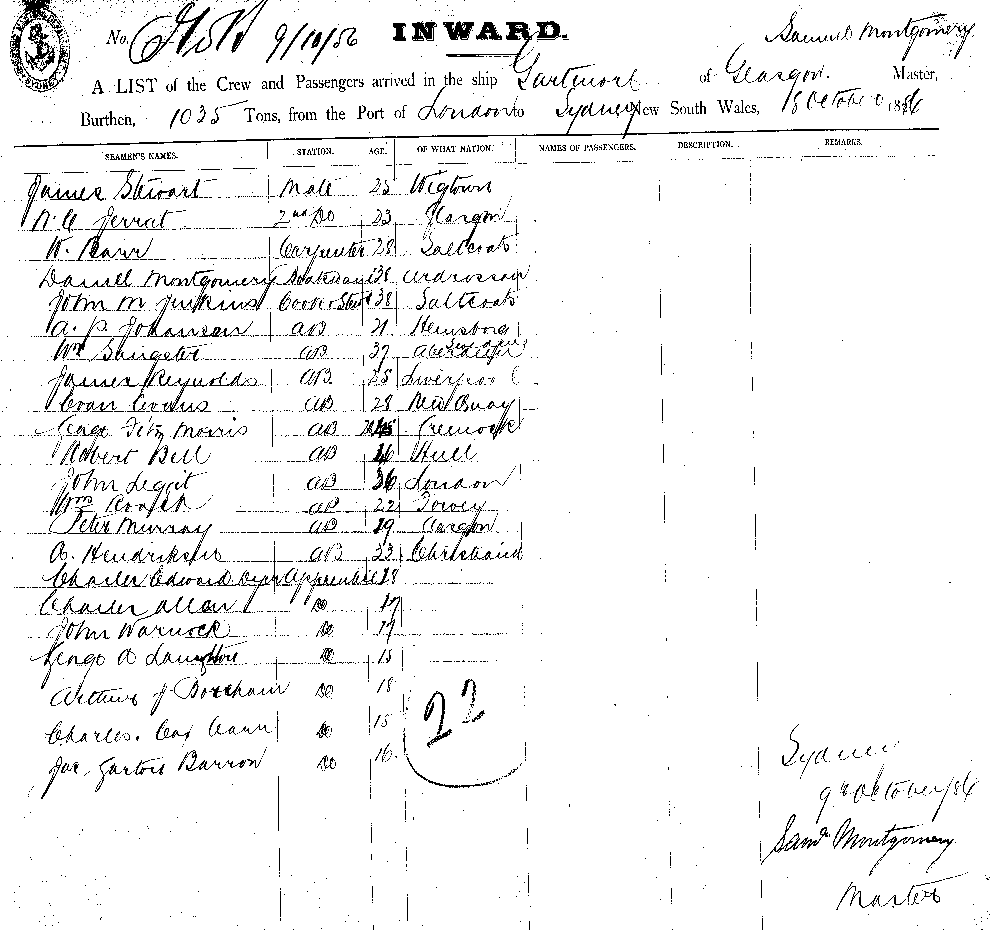 No. 9/10/86 INWARD. Samuel Montgomery
A LIST of the Crew and Passengers arrived in the ship Gartmore of Glasgow. Master,
Burthen, 1035 Tons, from the Port of London to Sydney New South Wales, 18 October 1886
SEAMEN'S NAMES. STATION. AGE. OF WHAT NATION. NAMES OF PASSENGERS. DESCRIPTION. REMARKS.
James Stewart Mate 25 Wigtown
Jerrat 2nd Do 23 Glasgow
W. Barr Carpenter 28 Saltcoats
Daniell Montgomery 38 Ardrossan
John M Jenkins Cook & Stwd 38 Saltcoats
A. P. Johansen AB 21
Wm AB 37 Aberdeen
James Reynolds AB 25 Liverpool
Evan Evans AB 28 New Quay
George Fitz Morris AB Greenock
Robert Bell AB Hull
John Leggit AB 36 London
Wm AB 22 Fowey
Peter Murray AB 19 Glasgow
A. Hendriksen AB 22
Charles Edward Dyer Apprentice 18
Charles Allan Do 17
John Warnock Do 19
George A Do 15
Arthur J Do 18
Charles. Do 15
Jas. Garton Barron Do 16.
22
Sydney
9th October/86
Saml Montgomery
Master